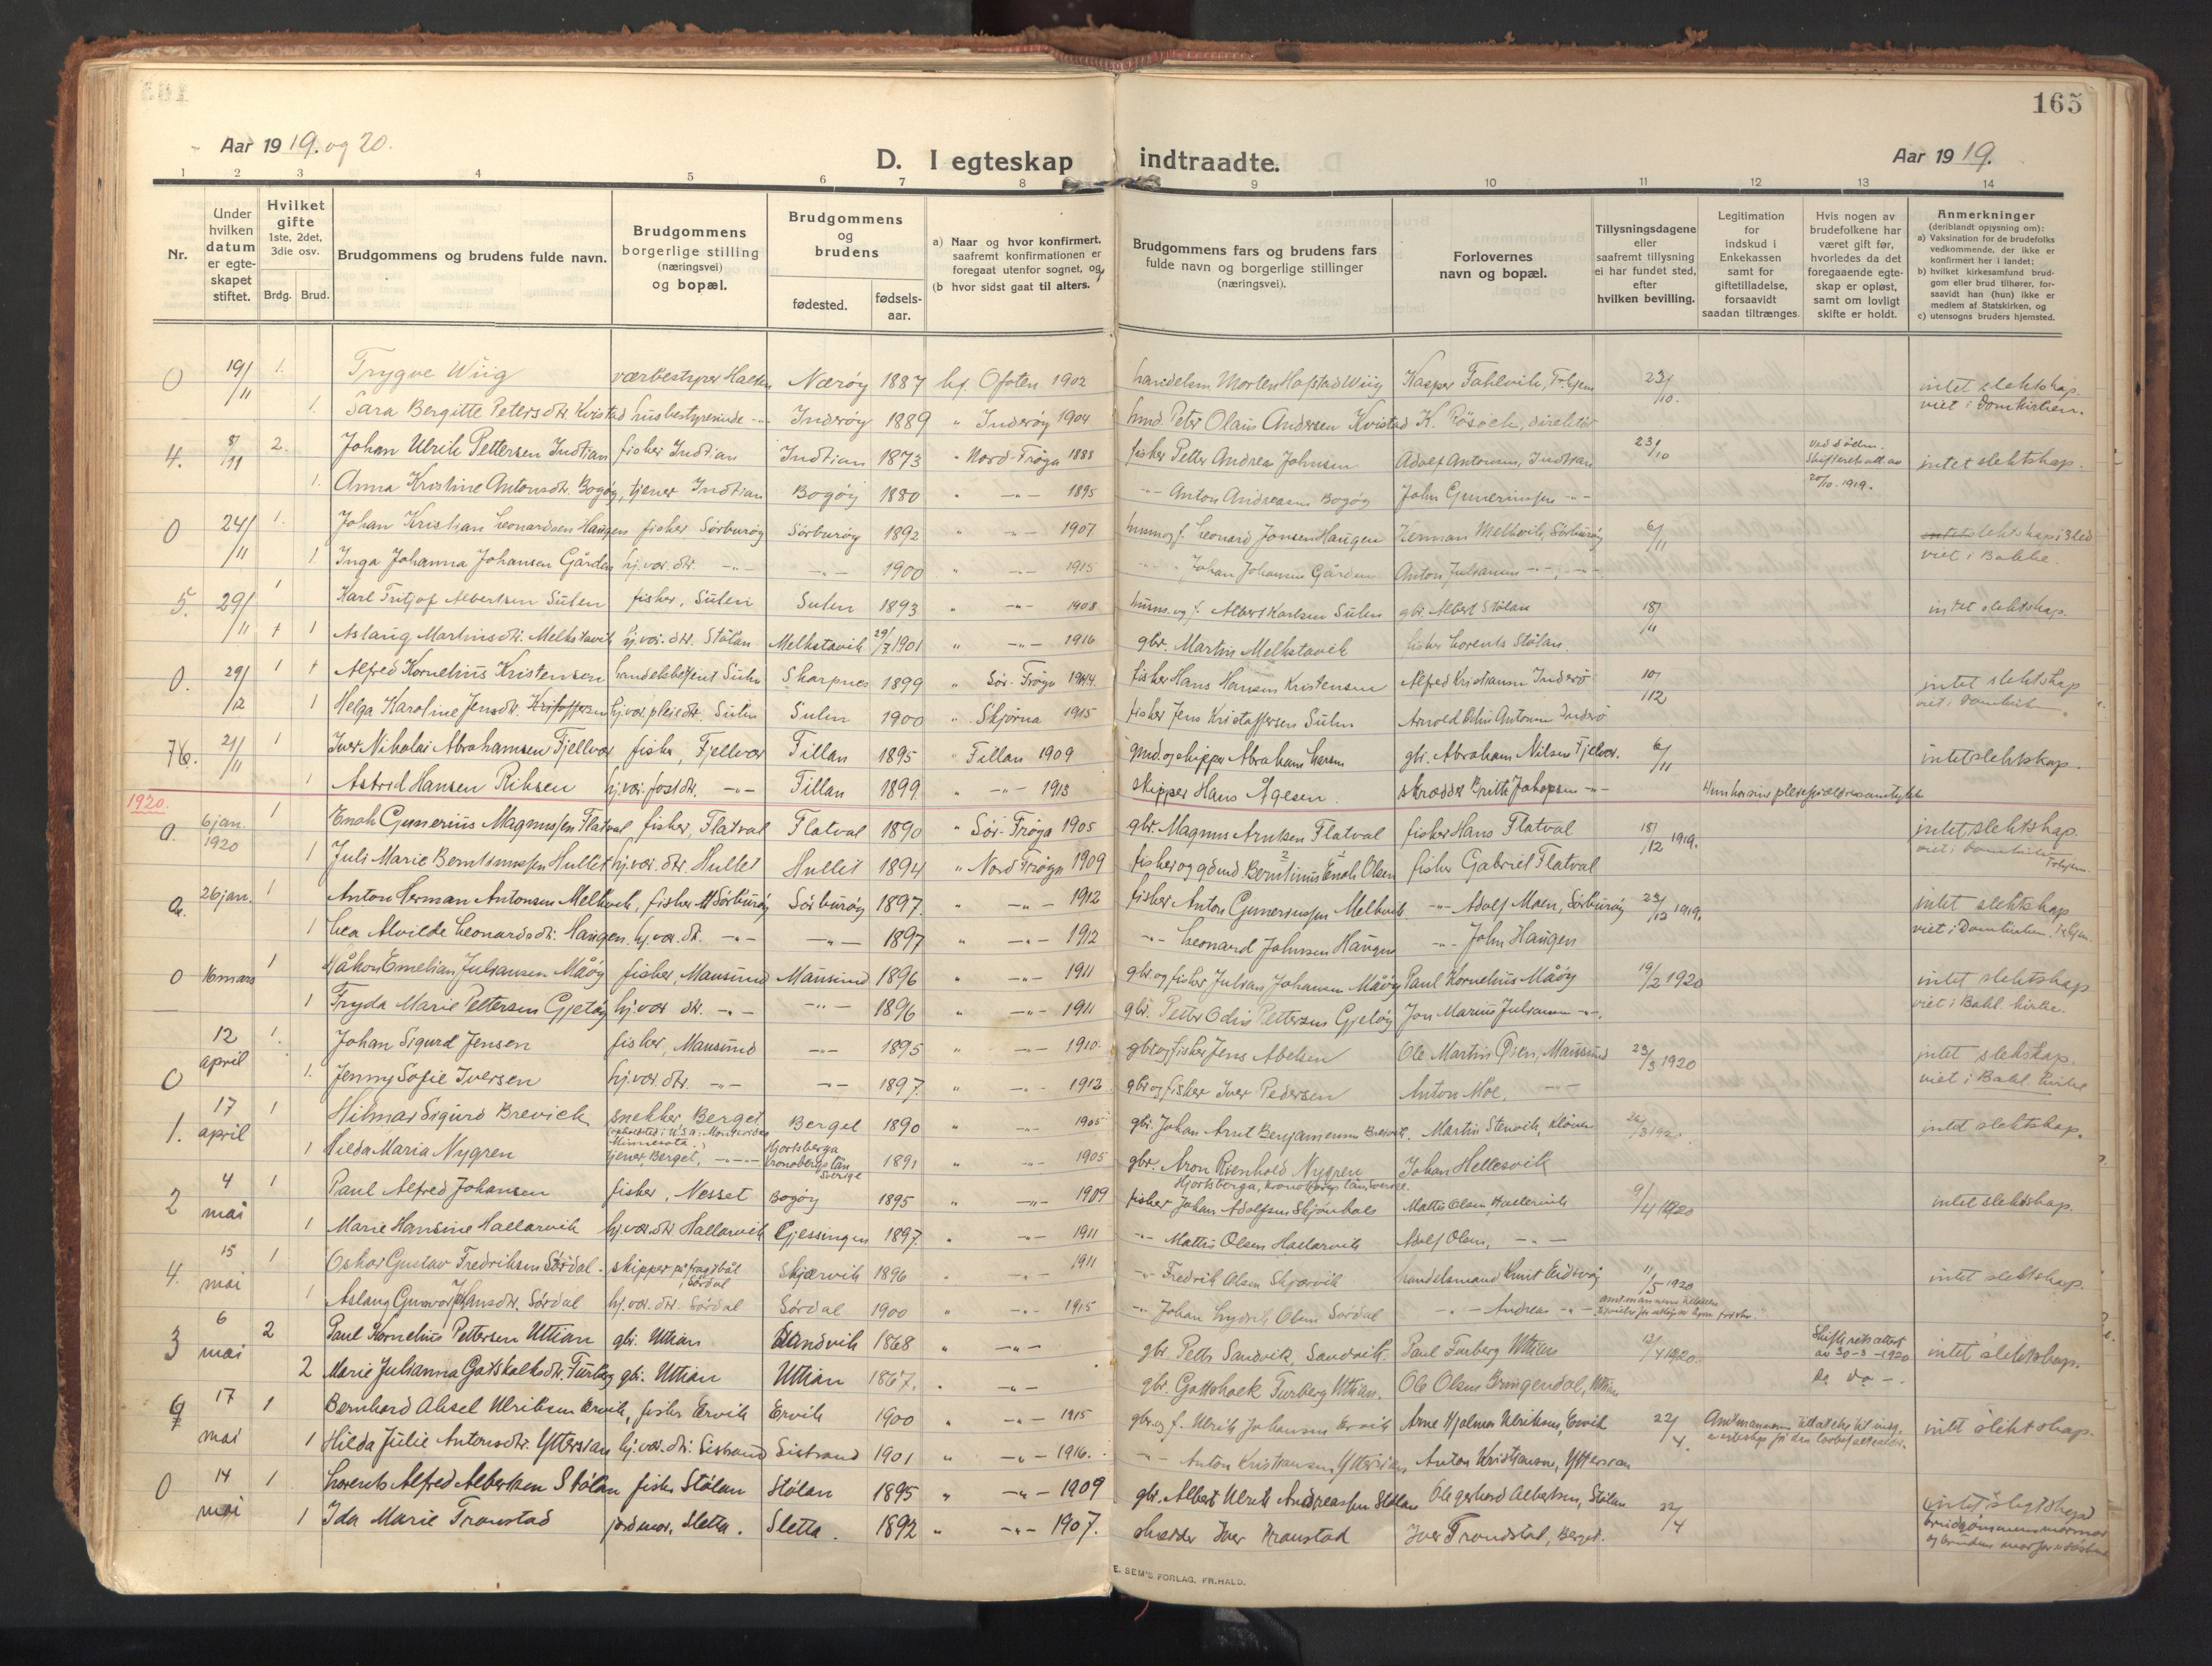 165
Aar 19 19. og 20.
D. I egteskap indtraadte.
Aar 19 19.
1 2 3 4 5 6 7 8 9 10 11 12 13 14
Nr.
Under hvilken datum er egteskapet stiftet.
Hvilket gifte 1ste, 2det, 3die osv.
Brdg. Brud.
Brudgommens og brudens fulde navn.
Brudgommens borgerlige stilling (næringsvei) og bopæl.
Brudgommens og brudens
fødested. fødsels-aar.
a) Naar og hvor konfirmert, saafremt konfirmationen er foregaat utenfor sognet, og
(b hvor sidst gaat til alters.
Brudgommens fars og brudens fars fulde navn og borgerlige stillinger (næringsvei).
Forlovernes navn og bopæl.
Tillysningsdagene eller saafremt tillysning ei har fundet sted, efter hvilken bevilling.
Legitimation for indskud i Enkekassen samt for giftetilladelse, forsaavidt saadan tiltrænges.
Hvis nogen av brudefolkene har været gift før, hvorledes da det foregaaende egteskap er opløst, samt om lovligt skifte er holdt.
Anmerkninger (deriblandt opjysning om):
a) Vaksination for de brudefolks vedkommende, der ikke er konfirmert her i landet;
b) hvilket kirkesamfund brudgom eller brud tilhører, forsaavidt han (hun) ikke er medlem af Statskirken, og
c) utensogns bruders hjemsted.
0 19/11 1. Trygve Wiig værbestyrer Nærøy 1887 Ofoten 1902 handelsm Morten Hofstad Wiig Kasper Fahlvik, Tr.hjem 23/10. intet slektskap. viet i Domkirken.
1. Sara Bergitte Petersdtr Kvistad husbestyrerinde -"- Inderøy 1889 " Inderøy 1904 Peter Olaus Andersen Kvistad
4. 8/11 2. Johan Ulrik Pettersen Indtian fisker Indtian Indtian 1873 " Nord-Frøya 1888 fisker Petter Andreas Johnsen Adolf Antonsen, Indtian 23/10 ved døden. 20/10. 1919. intet slektskap.
1. Anna Kristine Antonsdtr. Bogøy, tjener Indtian Bogøy 1880 " -"- 1895 -"- Anton Andreasen Bogøy John
0 24/11 1. Johan Kristian Leonardsen Haugen fisker Sørburøy Sørburøy 1892 " -"- 1907 Leonard Jonsen Haugen Herman Melkvik, Sørburøy 6/11 slektskap i 3 led viet i Bakke.
1 Inga Johanna Johansen Gården hj.vær.dtr. -"- -"- 1900 " -"- 1915 Johan Johansen Gården Anton Juliansen -"-
5. 29/11 1 Karl Fritjof Albertsen Sulen fisker, Sulen Sulen 1893 " -"- 1908 Albert Karlsen Sulen gbr. Albert Stølan 18/11 intet slektskap.
1 Aslaug Martinsdtr. Melkstavik hj.vær.dtr. Stølan Melkstavik 29/7 1901 " -"- 1916 gbr. Martin Melkstavik fisker Lorents Stølan.
0. 29/12 1 Alfred Kornelius Kristensen handelsbetjent Sulen Skarpnes 1899 " Sør-Frøya 1914. fisker Hans Hansen Kristensen Alfred Kristiansen Inderø 10/12 intet slektskap viet i Domkirk
1 Helga Karoline Jensdtr. Kristoffersen hj.vær. pleiedtr. Sulen Sulen 1900 " Skjørna 1915 fisker Jens Kristoffersen Sulen Arnold Odin Antonsen Inderø
76. 21/11 1 Iver Nikolai Abrahamsen Fjellvær fisker, Fjellvær Fillan 1895 " Fillan 1909 gmd. og skipper Abraham Larsen gbr. Abraham Nilsen Fjelvær. 6/11 intet slektskap.
1 Astrid Hansen Riksen hj.vær. fostdtr. -"- Fillan 1899. " -"- 1913 skipper Hans Ågesen. skrædder
1920.
0. 6 jan. 1920 1 Enok Gunerius Magnussen Flatval, fisker, Flatval Flatval 1890 " Sør-Frøya 1905 gbr. Magnus Arntsen Flatval fisker Hans Flatval 18/12 1919. intet slektskap. viet i Domkirken
1 Juli Marie Berntinussen Hullet hj.vær. dtr. Hullet Hullet 1894 " Nord Frøya 1909 fisker og gdmd Berntinus Enok Olsen fisker Gabriel Flatval
0. 26 jan. 1 Anton Herman Antonsen Melkvik, fisker Sørburøy Sørburøy 1897. " -"- 1912 fisker Anton Gunerussen Melkvik -"- Adolf Moen, Sørburøy 23/12 1919. intet slektskap viet i Domkirken.
1 Lea Alvilde Leonardsdtr. Haugen. hj.vær.dt. -"- -"- 1897 " -"- 1912 -"- Leonard Johnsen Haugen -"- John Haugen
0 16 mars 1 Håkon Emelian Juliansen Måøy fisker, Mausund Mausund 1896 " -"- 1911 gbr. og fisker Julian Johansen Måøy Paul Kornelius Måøy 19/2 1920 intet slektskap viet i Bakl. kirke.
1 Fryda Marie Pettersen Gjetøy hj.vær dtr. -"- -"- 1896 " -"- 1911 gbr. Petter Odin Pettersen Gjetøy Jon Marius Juliansen -"-.
0 12 april 1. Johan Sigurd Jensen fisker, Mausund -"- 1895 " -"- 1910. gbr og fisker Jens Abelsen Ole Martin Øien, Mausund 23/3 1920 intet slektskap. viet i Bakl kirke
1. Jenny Sofie Iversen hj.vær. dtr. -"- -"- 1897. " -"- 1912. gbr og fisker Iver Pedersen Anton Moe, -"-
1. 17 april 1 Hilmar Sigurd Brevick snekker Berget Minnesota Berget 1890 " -"- 1905 gbr. Johan Arnt Benjaminsen Brevik. Martin Stenvik, Kløven 26/3 1920. intet slektskap.
1 Hilda Maria Nygren tjener, Berget, Hjortsberga Kronobergs län Sverige 1891 " -"- 1905 gbr. Aron Rienhold Nygren Hjortsberga, Kronobergs län Sverige. Johan Hellesvik
2 4 mai 1 Paul Alfred Johansen fisker, Nesset Bogøy 1895 " -"- 1909 fisker Johan Adolfsen Skjønhals Mattis Olsen, Hallervik 9/4 1920 intet slektskap.
1 Marie Hansine Hallarvik hj.vær.dtr. Hallarvik Gjessingen 1897. " -"- 1911 -"- Mattis Olsen Hallarvik Adolf Olsen, -"-
4. 15 mai 1 Oskar Gustav Fredriksen Sørdal. skipper på fragtbåt, Sørdal Skjærvik 1896 " -"- 1911 -"- Fredrik Olsen Skjærvik handelsmand Knut Eidsvåg 11/5 1920 intet slektskap.
1 Aslaug Gunvor Johansdtr. Sørdal hj.vær. dtr. Sørdal Sørdal 1900 " -"- 1915 -"- Johan Olsen Sørdal -"- Andreas -"-
3 6 mai 2 Paul Kornelius Pettersen Uttian gbr. Uttian Sandvik 1868 " -"- gbr. Petter Sandvik, Sandvik. Paul Furberg Uttian 13/4 1920. Skifterets attest av 30-3-1920 intet slektskap.
2 Marie Julianna Gotskalksdtr. Furberg gbr. Uttian Uttian 1867. " -"- gbr. Gottskalk Furberg Uttian. Ole Olsen Bringendal, Uttian Do do -.
9 17 mai 1 Bernhard Aksel Ulriksen Ervik, fisker Ervik Ervik 1900 " -"- 1915 gbr. og f. Ulrik Johansen Ervik Arne Hjalmar Ulriksen, Ervik 22/4. intet slektskap.
1 Hilda Julie Antonsdtr. Yttersian hj.vær.dtr. Sistrand Sistrand 1901 " -"- 1916. -"- Anton Kristiansen Yttersian Anton Kristiansen, Yttersian
0 14 mai 1 Lorents Alfred Albertsen Stølan fisker Stølan Stølan 1895 " -"- 1909 gbr. Albert Ulrik Andreassen Stølan Ole Gerhard Albertsen, Stølan 22/4 intet slegtskap brudgommens mormor og brudens morfar
1 Ida Marie Transtad jordmor, Sletta. Sletta. 1892 " -"- 1907. skredder Iver Transtad Iver Trondstad, Berget.
E. SEM'S FORLAG, FR.HALD.